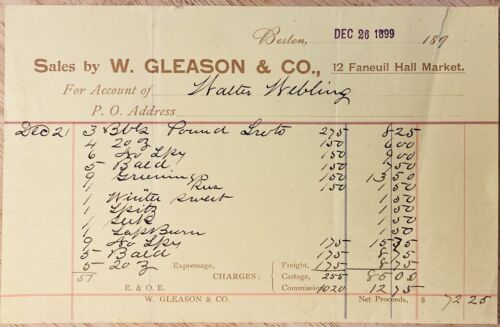 Boston, DEC 26 1899 189
Sales by W. GLEASON & CO., 12 Faneuil Hall Market.
For Account of Walter Webling
P. O. Address
Dec 21 3 Bbls Pound Swts 275 8 25
4 20 z 150 6 00
6 No Spy 150 9 00
5 Bald 150 7 50
9 Greenings 150 13 50
1 Rus 150 1 50
1 Winter Sweet 1 50
1 Spitz 1 50
1 Seek 1 50
1 1 50
9 No Spy 175 15 75
5 Bald 175 8 75
5 20 z Expressage, Freight, 175 8 75
51 CHARGES: Cartage, 255 85 00
E. & O. E. Commission 1020 12 75
W. GLEASON & CO. Net Proceeds, $ 72 25